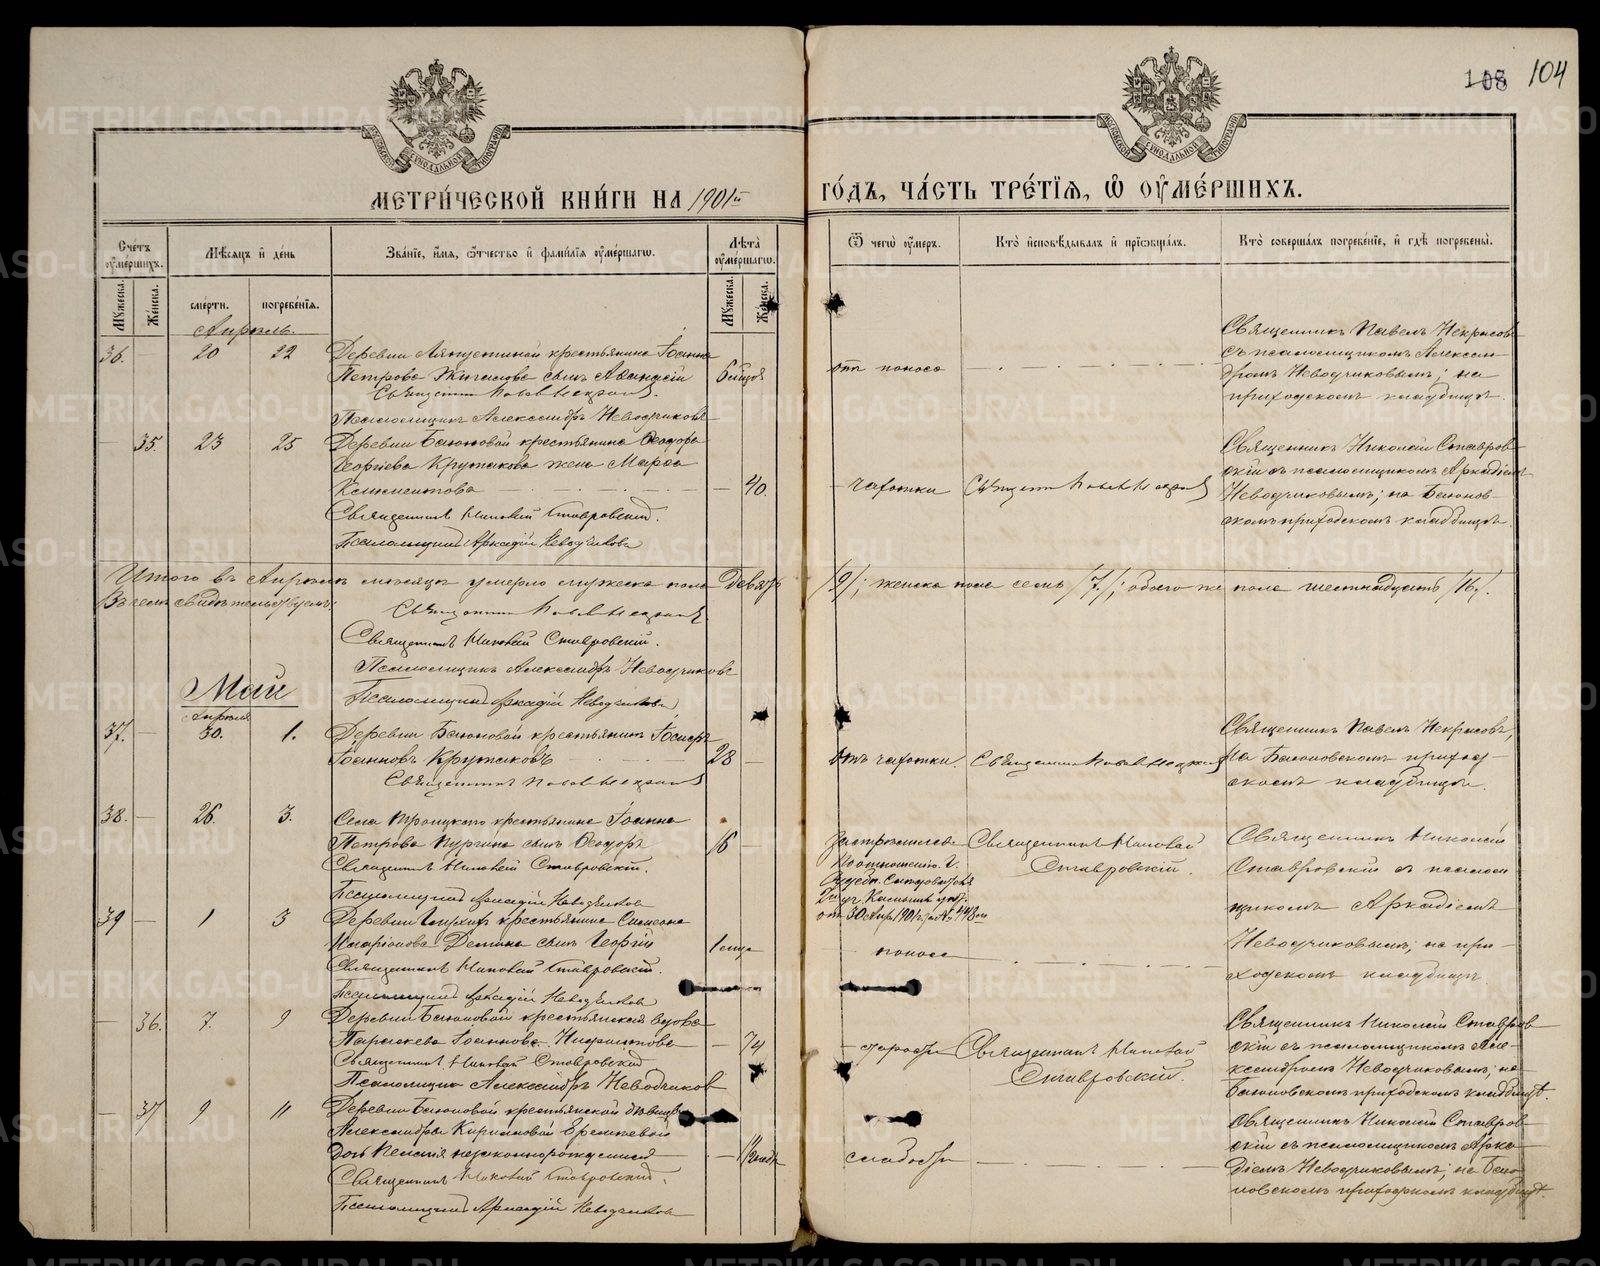 108 104
МЕТРИЧЕСКОЙ КНИГИ НА 1901й ГОДЪ, ЧАСТЬ ТРЕТІЯ, Ѿ ОУМЕРШИХЪ.
Счетъ оумершихъ.
Мѣсяцъ и день
Званіе, имя, ѿчество и фамилія оумершагω.
Лѣта оумершагω.
Ѿ чегω оумеръ.
Кто исповѣдывалъ и пріωбщалъ.
Кто совершалъ погребеніе, и гдѣ погребены.
Мужеска. Женска.
смерти. погребенія.
Мужеска. Женска.
Апрѣль.
36. — 20 22
Деревни крестьянина Іоанна
Петрова сынъ Аѳанасій
Священникъ Павелъ Некрасовъ.
Псаломщикъ Александръ Неводчиковъ
отъ поноса
Священникъ Павелъ Некрасовъ
съ псаломщикомъ Алексан-
дромъ Неводчиковымъ; на
приходскомъ кладбищѣ.
— 35. 23 25
Деревни Баюновой крестьянина Ѳеодора
Георгіева Крутикова жена Марѳа
Климентова — 40.
Священникъ Николай Ставровскій.
Псаломщикъ Аркадій Неводчиковъ
— чахотки
Священникъ Павелъ Некрасовъ
Священникъ Николай Ставров-
скій съ псаломщикомъ Аркадіемъ
Неводчиковымъ; на Баюнов-
скомъ приходскомъ кладбищѣ.
Итого въ Апрѣлѣ мѣсяцѣ умерло мужеска пола девять /9/; женска пола семь /7./; обоего же пола шестнадцать /16/.
Въ чемъ свидѣтельствуемъ:
Священникъ Павелъ Некрасовъ.
Священникъ Николай Ставровскій.
Псаломщикъ Александръ Неводчиковъ
Псаломщикъ Аркадій Неводчиковъ
Май
Апрѣля
37. — 30. 1.
Деревни Баюновой крестьянинъ
Іоанновъ Крутиковъ 28 —
Священникъ Павелъ Некрасовъ
отъ чахотки.
Священникъ Павелъ Некрасовъ
Священникъ Павелъ Некрасовъ,
на Баюновскомъ приход-
скомъ кладбищѣ.
38. — 26. 3.
Села Троицкаго крестьянина Іоанна
Петрова сынъ Ѳеодоръ 16 —
Священникъ Николай Ставровскій.
Псаломщикъ Аркадій Неводчиковъ
застрѣлился
По отношенію г.
Судебн. Слѣдователя
2 уч. Камышл. уѣз.
отъ 30 Апр. 1901 года за № 448
Священникъ Николай
Ставровскій.
Священникъ Николай
Ставровскій съ псалом-
щикомъ Аркадіемъ
Неводчиковымъ; на при-
ходскомъ кладбищѣ.
39 — 1 3
Деревни крестьянина Симеона
Иларіонова Демина сынъ Георгій
Священникъ Николай Ставровскій.
Псаломщикъ Аркадій Неводчиковъ
— поноса
— 36. 7. 9
Деревни Баюновой крестьянская вдова
Параскева Іоаннова — 74
Священникъ Николай Ставровскій
Псаломщикъ Александръ Неводчиковъ
— старости
Священникъ Николай
Ставровскій.
Священникъ Николай Ставров-
скій съ псаломщикомъ Але-
ксандромъ Неводчиковымъ; на
Баюновскомъ приходскомъ кладбищѣ.
— 37 9 11
Деревни Баюновой крестьянской дѣвицы
Александры Еремѣевой
дочь незаконнорожденная
Священникъ Николай Ставровскій.
Псаломщикъ Аркадій Неводчиковъ
слабости
Священникъ Николай Ставров-
скій съ псаломщикомъ Арка-
діемъ Неводчиковымъ; на Баю-
новскомъ приходскомъ кладбищѣ.
METRIKI.GASO-URAL.RU